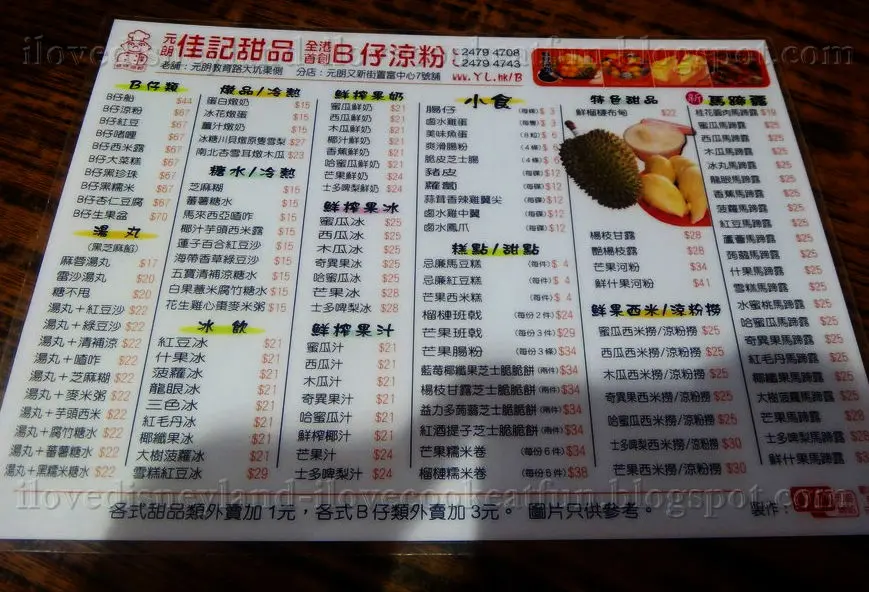 ilovedisneyland-ilovecookeatfun.blogspot.com
元朗 佳記甜品 全港首創 B仔涼粉 2479 4708
2479 4743
老舖：元朗教育路大坑渠側 分店：元朗又新街置富中心7號舖 www.YL.hk/B
B仔類
B仔船 $44
B仔涼粉 $67
B仔紅豆 $67
B仔啫喱 $67
B仔西米露 $67
B仔大菜糕 $67
B仔黑珍珠 $67
B仔黑糯米 $67
B仔杏仁豆腐 $67
B仔生果盆 $70
湯丸
(黑芝麻餡)
麻蓉湯丸 $17
雷沙湯丸 $20
糖不甩 $20
湯丸＋紅豆沙 $22
湯丸＋綠豆沙 $22
湯丸＋清補涼 $22
湯丸＋喳咋 $22
湯丸＋芝麻糊 $22
湯丸＋麥米粥 $22
湯丸＋芋頭西米 $22
湯丸＋腐竹糖水 $22
湯丸＋蕃薯糖水 $22
湯丸＋黑糯米糖水 $22
燉品/冷熱
蛋白燉奶 $15
冰花燉蛋 $15
薑汁燉奶 $15
冰糖川貝燉原隻雪梨 $27
南北杏雪耳燉木瓜 $23
糖水/冷熱
芝麻糊 $15
蕃薯糖水 $15
馬來西亞喳咋 $15
椰汁芋頭西米露 $15
蓮子百合紅豆沙 $15
海帶香草綠豆沙 $15
五寶清補涼糖水 $15
白果薏米腐竹糖水 $15
花生雞心棗麥米粥 $15
冰飲
紅豆冰 $21
什果冰 $21
菠蘿冰 $21
龍眼冰 $21
三色冰 $21
紅毛丹冰 $21
椰纖果冰 $21
大樹菠蘿冰 $21
雪糕紅豆冰 $29
鮮榨果奶
蜜瓜鮮奶 $21
西瓜鮮奶 $21
木瓜鮮奶 $21
椰汁鮮奶 $21
香蕉鮮奶 $21
哈蜜瓜鮮奶 $21
芒果鮮奶 $24
士多啤梨鮮奶 $24
鮮榨果冰
蜜瓜冰 $25
西瓜冰 $25
木瓜冰 $25
奇異果冰 $25
哈蜜瓜冰 $25
芒果冰 $28
士多啤梨冰 $28
鮮榨果汁
蜜瓜汁 $21
西瓜汁 $21
木瓜汁 $21
奇異果汁 $21
哈蜜瓜汁 $21
鮮榨椰汁 $21
芒果汁 $24
士多啤梨汁 $24
小食
腸仔 (每條) $ 3
鹵水雞蛋 (每隻) $ 3
美味魚蛋 (8粒) $ 6
爽滑腸粉 (4條) $ 6
脆皮芝士腸 (4條) $ 6
豬皮 (每碟) $12
蘿蔔 (每碟) $12
蒜茸香辣雞翼尖 (每碟) $12
鹵水雞中翼 (每碟) $12
鹵水鳳爪 (每碟) $12
糕點/甜點
忌廉馬豆糕 (每件) $ 4
忌廉紅豆糕 (每件) $ 4
芒果西米糕 (每件) $ 4
榴槤班戟 (每份2件) $24
芒果班戟 (每份3件) $29
芒果腸粉 (每份3條) $34
藍莓椰纖果芝士脆脆餅 (兩件) $34
楊枝甘露芝士脆脆餅 (兩件) $34
益力多蒟蒻芝士脆脆餅 (兩件) $34
紅酒提子芝士脆脆餅 (兩件) $34
芒果糯米卷 (每份6件) $34
榴槤糯米卷 (每份6件) $38
特色甜品
鮮榴槤布甸 $22
楊枝甘露 $28
酷楊枝露 $28
芒果河粉 $34
鮮什果河粉 $41
鮮果西米/涼粉撈
蜜瓜西米撈/涼粉撈 $25
西瓜西米撈/涼粉撈 $25
木瓜西米撈/涼粉撈 $25
奇異果西米撈/涼粉撈 $25
哈蜜瓜西米撈/涼粉撈 $25
士多啤梨西米撈/涼粉撈 $30
芒果西米撈/涼粉撈 $30
新 馬蹄露
桂花蛋肉馬蹄露 $19
蜜瓜馬蹄露 $25
西瓜馬蹄露 $25
木瓜馬蹄露 $25
冰丸馬蹄露 $25
龍眼馬蹄露 $25
香蕉馬蹄露 $25
菠蘿馬蹄露 $25
蘆薈馬蹄露 $25
蒟蒻馬蹄露 $25
什果馬蹄露 $25
雪糕馬蹄露 $25
水蜜桃馬蹄露 $25
哈蜜瓜馬蹄露 $25
奇異果馬蹄露 $25
紅毛丹馬蹄露 $25
椰纖果馬蹄露 $25
大樹菠蘿馬蹄露 $25
芒果馬蹄露 $28
士多啤梨馬蹄露 $28
鮮什果馬蹄露
各式甜品類外賣加1元，各式B仔類外賣加3元。 圖片只供參考。 製作：
ilovedisneyland-ilovecookeatfun.blogspot.com